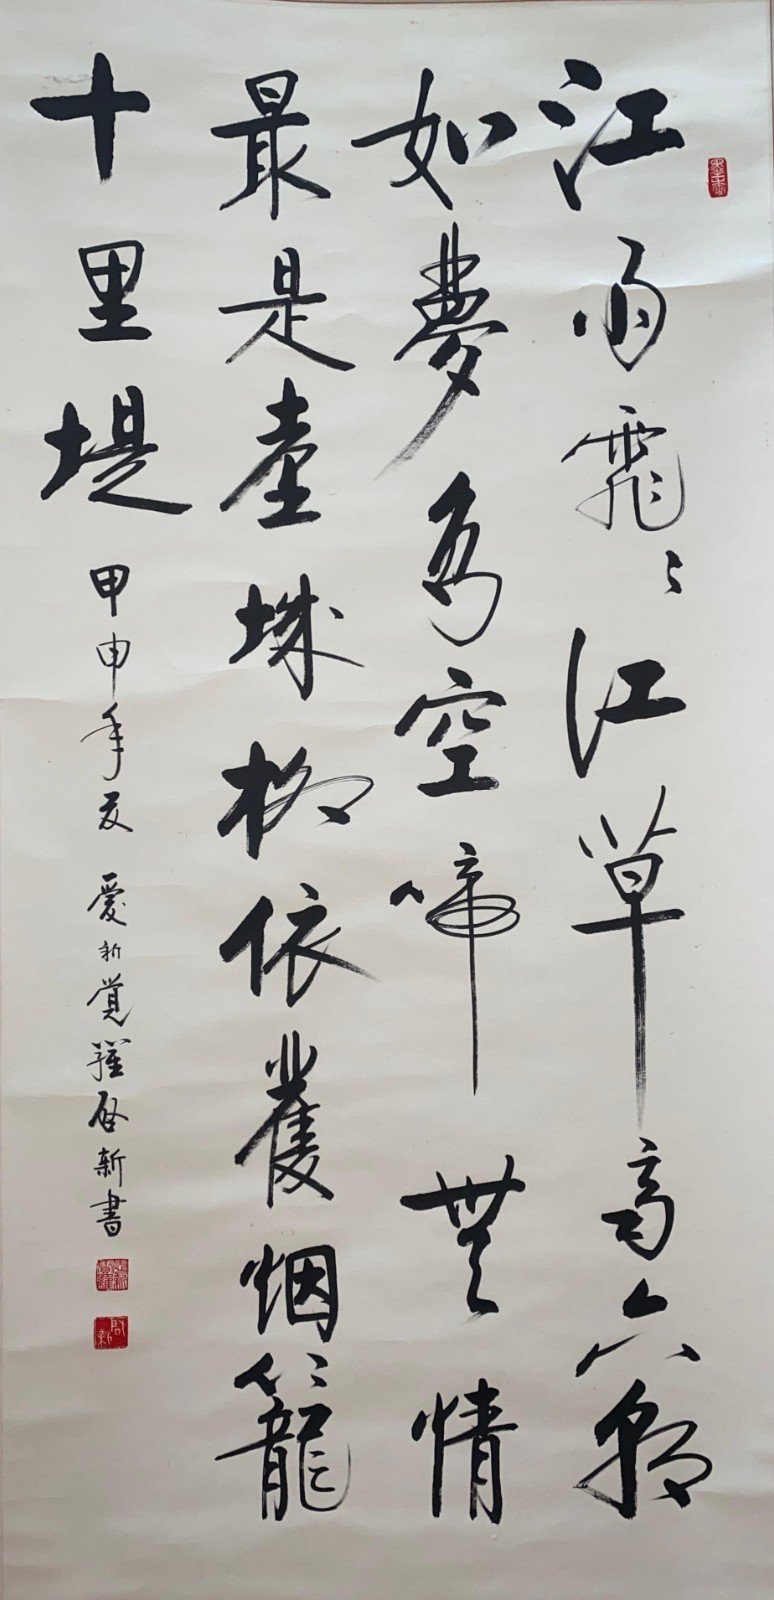 江雨霏〻江草齊六朝
如夢鳥空啼無情
最是臺城柳依舊烟籠
十里堤 甲申年夏 愛新覺羅启新書